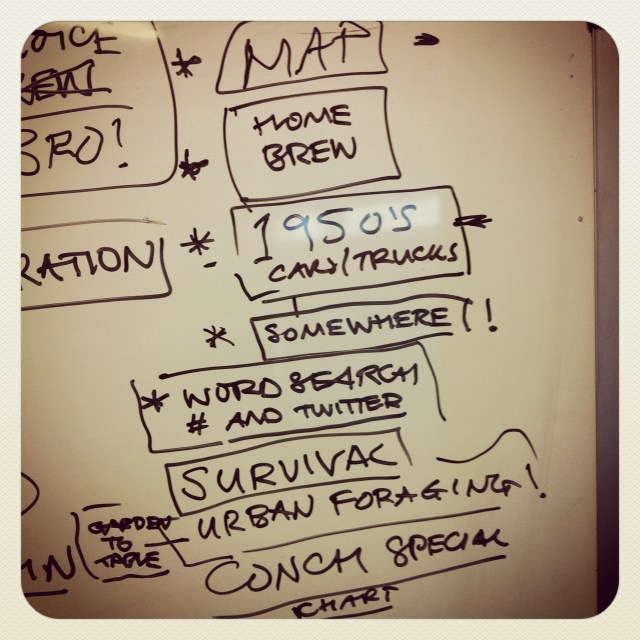 OICE
BRO!
RATION
* MAP
* HOME
BREW
* 1950'S
CARS/TRUCKS
* SOMEWHERE!!
* WORD SEARCH
# AND TWITTER
SURVIVAL
URBAN FORAGING!
GARDEN
TO
TABLE
CONCH SPECIAL
KHART